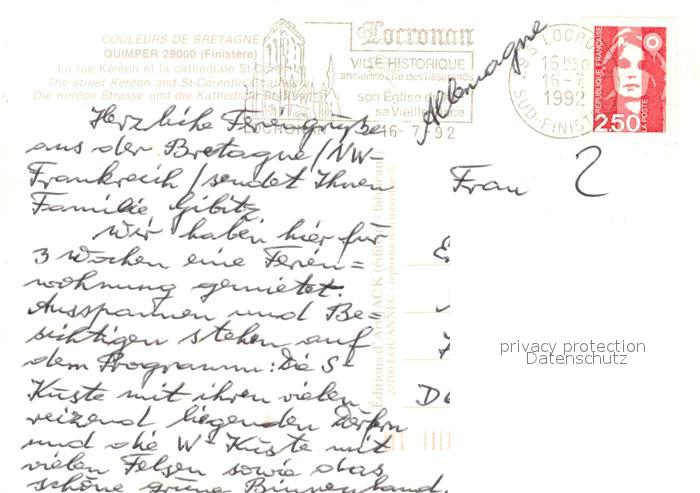 COULEURS DE BRETAGNE
QUIMPER 29000 (Finistère)
La rue Kéréon et la cathédrale St-Corentin
The street Kéréon and St-Corentin cathedral
Die Kéréon Strasse und die Kathedrale St-Corentin
Locronan
VILLE HISTORIQUE
ancienne cité des tisserands
son Église
sa Vieille Place
LOCRONAN
16-7 92
LOCRONAN
16 H
16-7
1992
SUD-FINISTÈRE
RÉPUBLIQUE FRANÇAISE
2,50
LA POSTE
Allemagne
Herzliche Feriengrüße
aus der Bretagne/NW-
Frankreich/sendet Ihnen
Familie Gibitz
Wir haben hier für
3 Wochen eine Ferien=
wohnung gemietet.
Ausspannen und Be=
sichtigen stehen auf
dem Programm: Die S-
Küste mit ihren vielen
reizend liegenden Dörfern
und die W-Küste mit
vielen Felsen sowie das
schöne grüne Binnenland.
Frau
Éditions d'Art JACK
privacy protection
Datenschutz